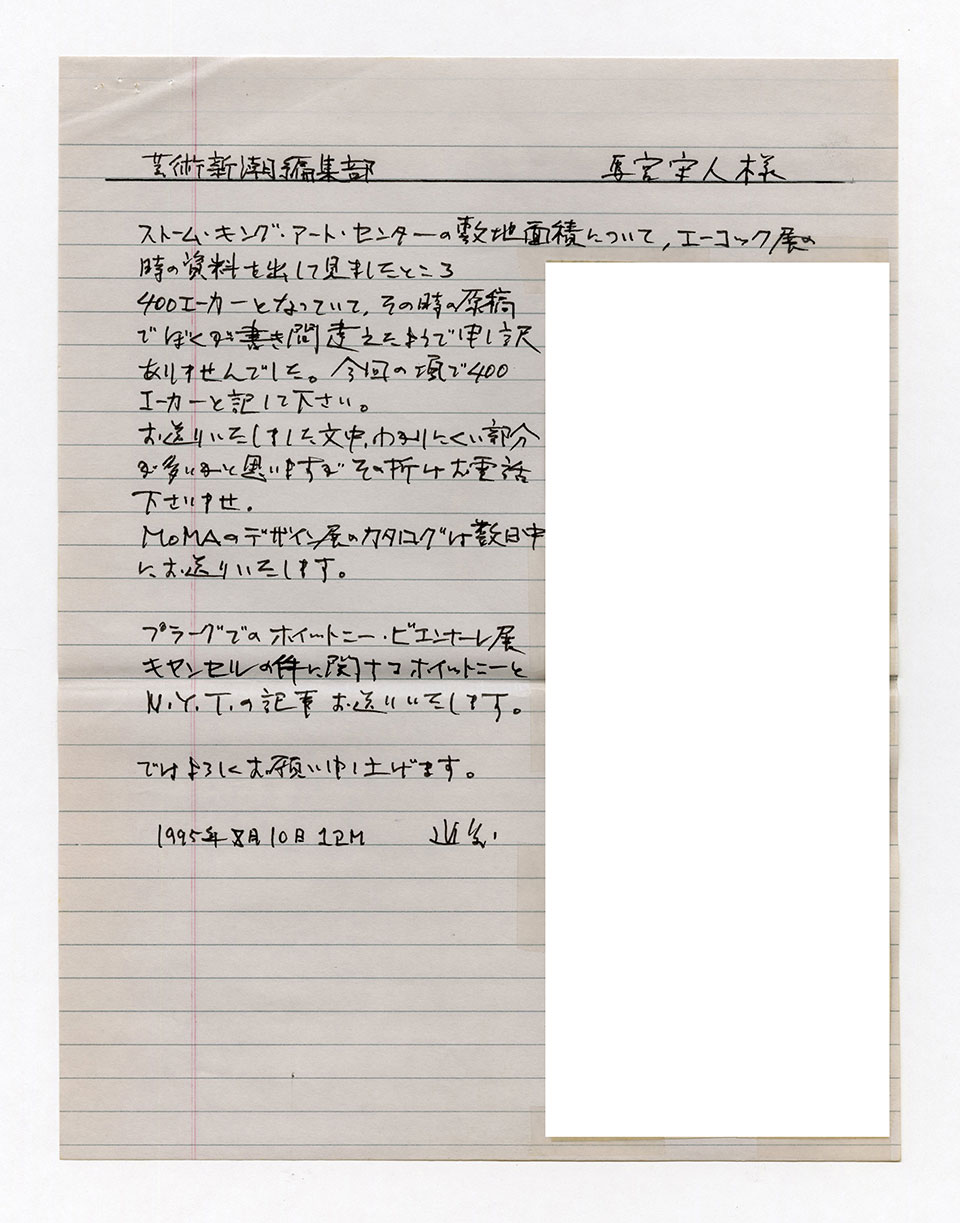 芸術新潮編集部 馬宮守人様
ストーム・キング・アート・センターの敷地面積について,エーコック展の
時の資料を出して見ましたところ
400エーカーとなっていて,その時の原稿
でぼくが書き間違えたようで申し訳
ありませんでした。今回の項で400
エーカーと記して下さい。
お送りいたしました文中,わかりにくい部分
が多いかと思いますが その折はお電話
下さいませ.
MoMAのデザイン展のカタログは数日中
にお送りいたします。
プラーグでのホイットニー・ビエンナーレ展
キャンセルの件に関するホイットニーと
N.Y.T.の記事 お送りいたします。
ではよろしくお願い申し上げます。
1995年8月10日 1PM